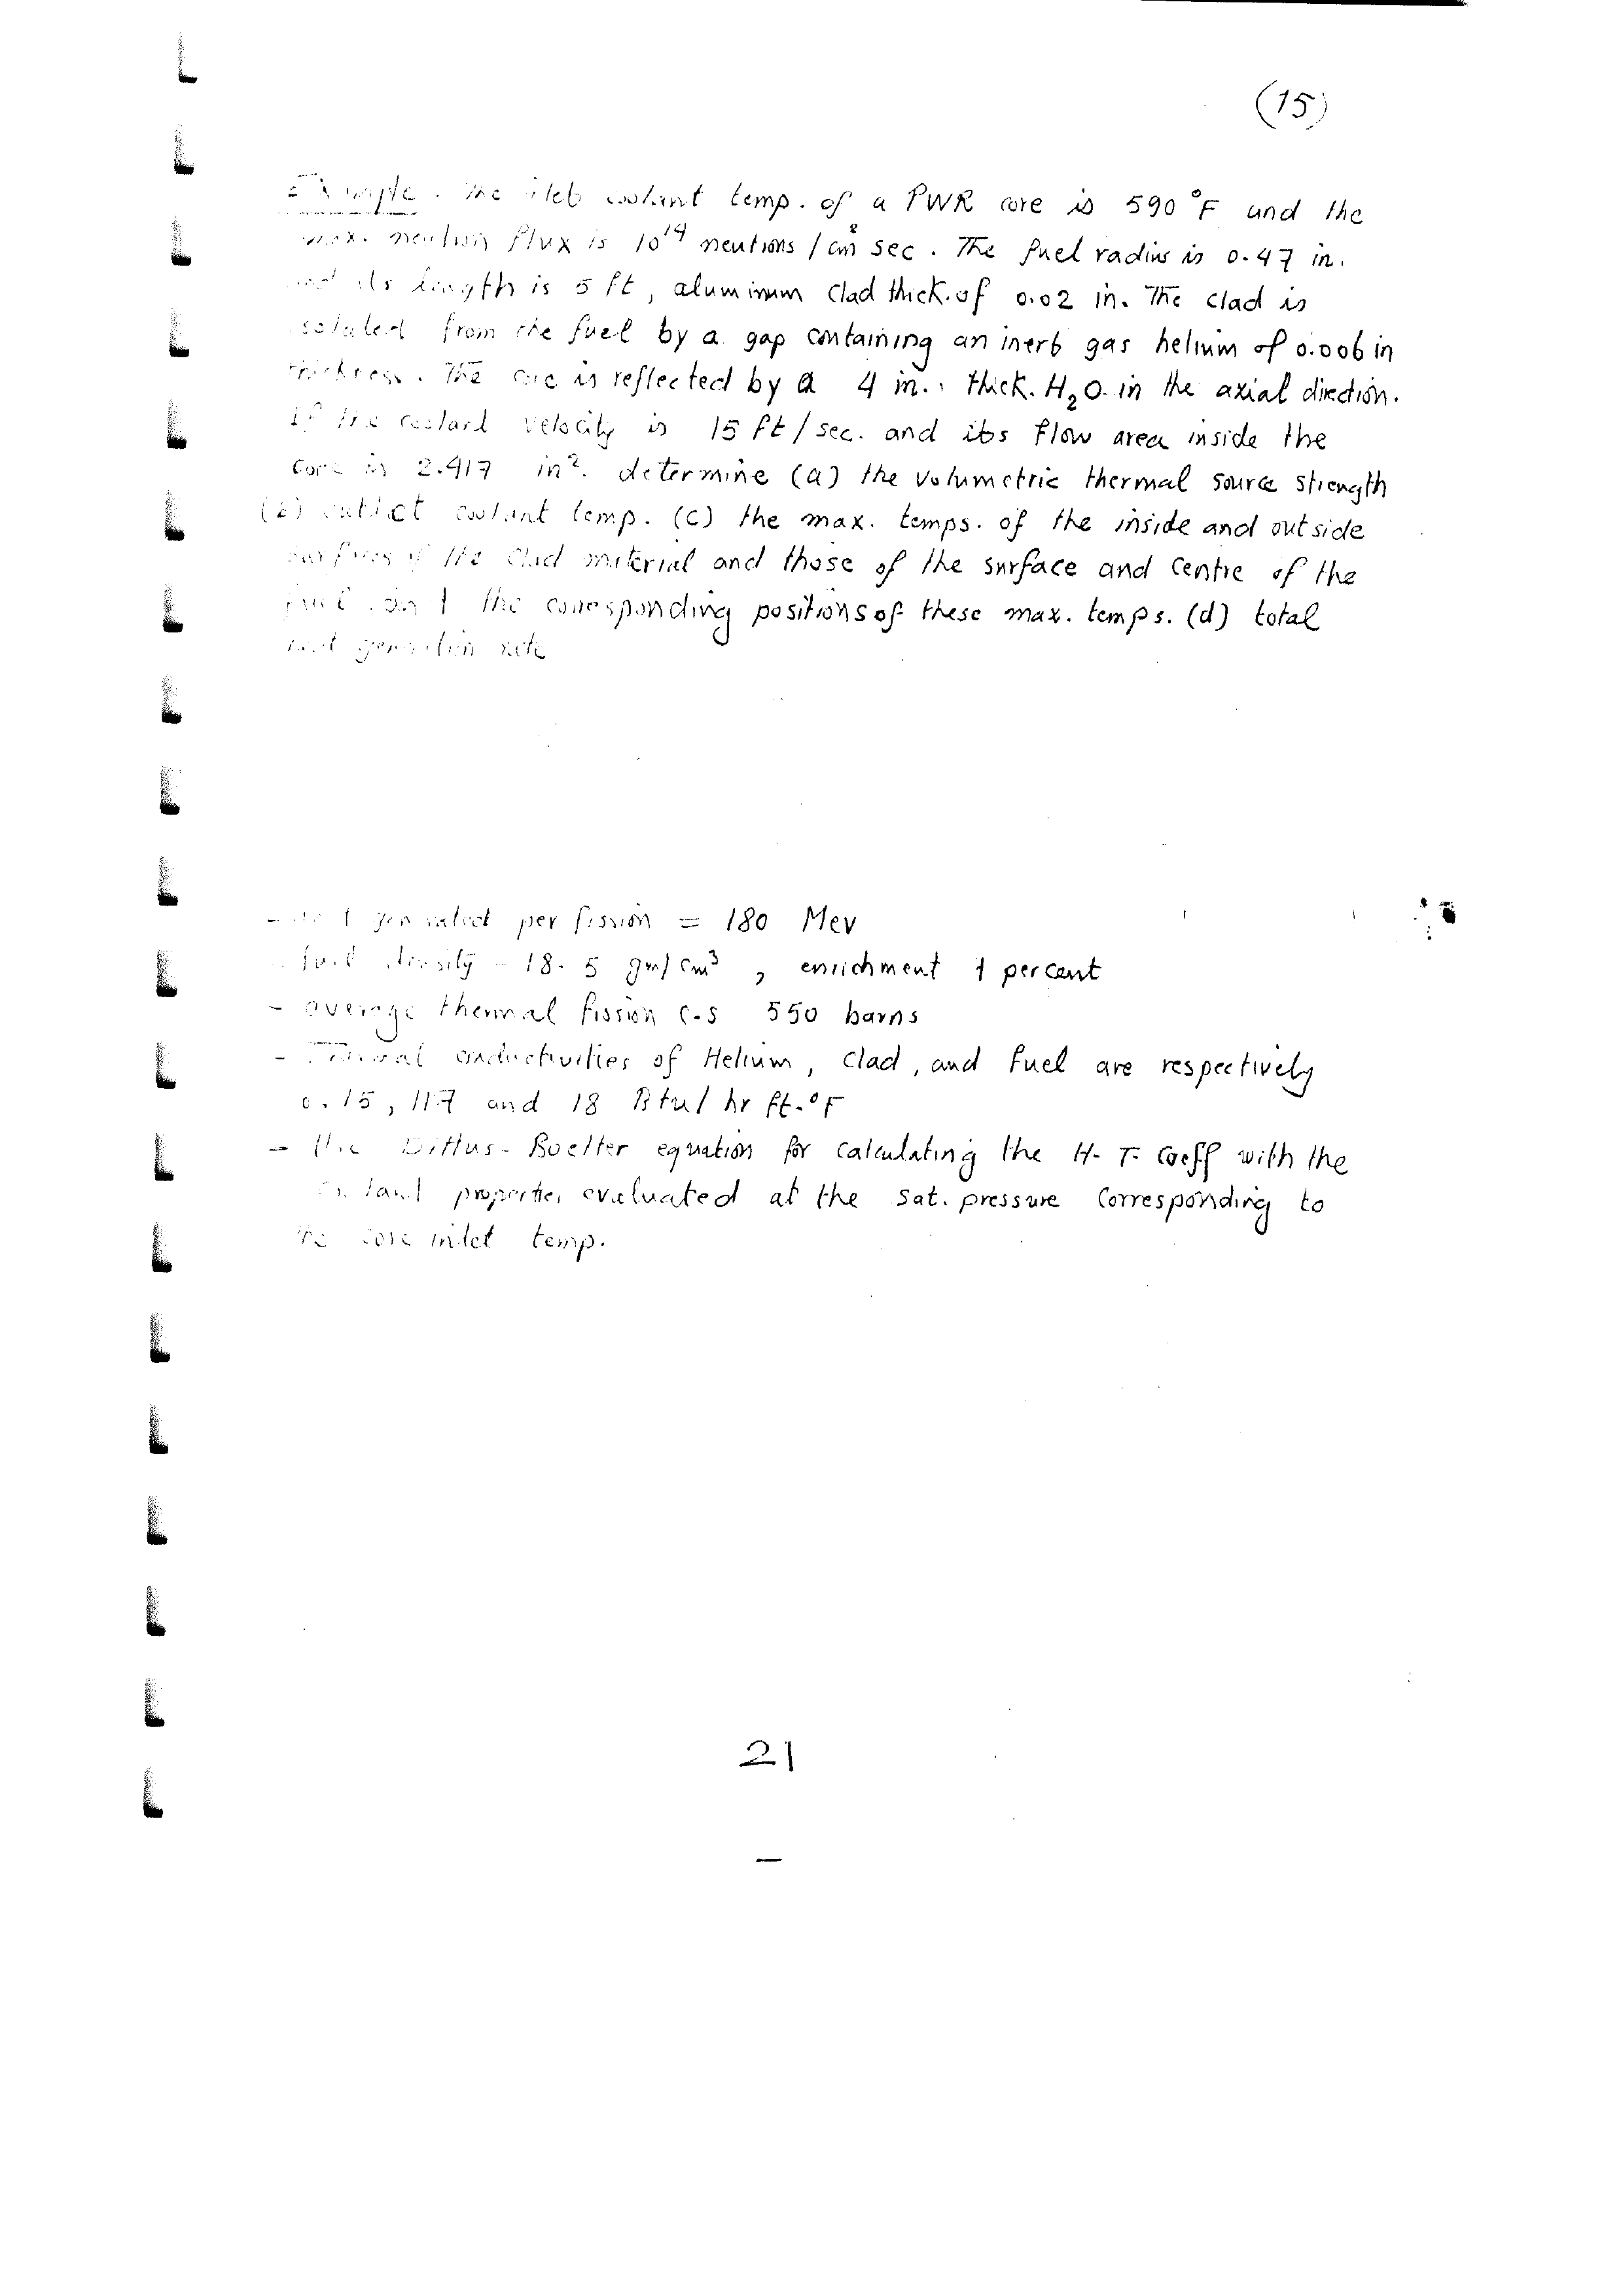 (15)
Example. The inlet coolant temp. of a PWR core is 590 °F and the
max. neutron flux is 10¹⁴ neutrons / cm² sec. The fuel radius is 0.47 in.
and its length is 5 ft, aluminum clad thick. of 0.02 in. The clad is
isolated from the fuel by a gap containing an inert gas helium of 0.006 in
thickness. The core is reflected by a 4 in. thick. H₂O in the axial direction.
If the coolant velocity is 15 ft/sec. and its flow area inside the
core is 2.417 in². determine (a) the volumetric thermal source strength
(b) outlet coolant temp. (c) the max. temps. of the inside and outside
surfaces of the clad material and those of the surface and centre of the
fuel and the corresponding positions of these max. temps. (d) total
heat generation rate
- generated per fission = 180 Mev
fuel density = 18.5 gm/cm³, enrichment 1 percent
- average thermal fission c.s 550 barns
- Thermal conductivities of Helium, clad, and fuel are respectively
0.15, 117 and 18 Btu/ hr ft.°F
- The Dittus-Boelter equation for calculating the H.T. Coeff with the
coolant properties evaluated at the sat. pressure corresponding to
the core inlet temp.
21